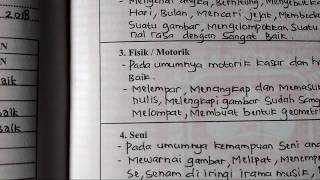 2018
Mengenal angka, Berhitung, Menyebutka
Hari, Bulan, Mencari jejak, Membedak
Suatu gambar, mengelompokkan Suatu
hal rasa dengan Sangat Baik.
3. Fisik / Motorik
- Pada umumnya motorik kasar dan h
Baik.
- Melempar, Menangkap dan Memasu
nulis, Melengkapi gambar Sudah Sang
Melompat, Membuat bentuk geometri
aik
aik
baik
4. Seni
- Pada umumnya kemampuan Seni ana
- Mewarnai gambar, Melipat, Menemp
se, Senam di iringi irama musik,